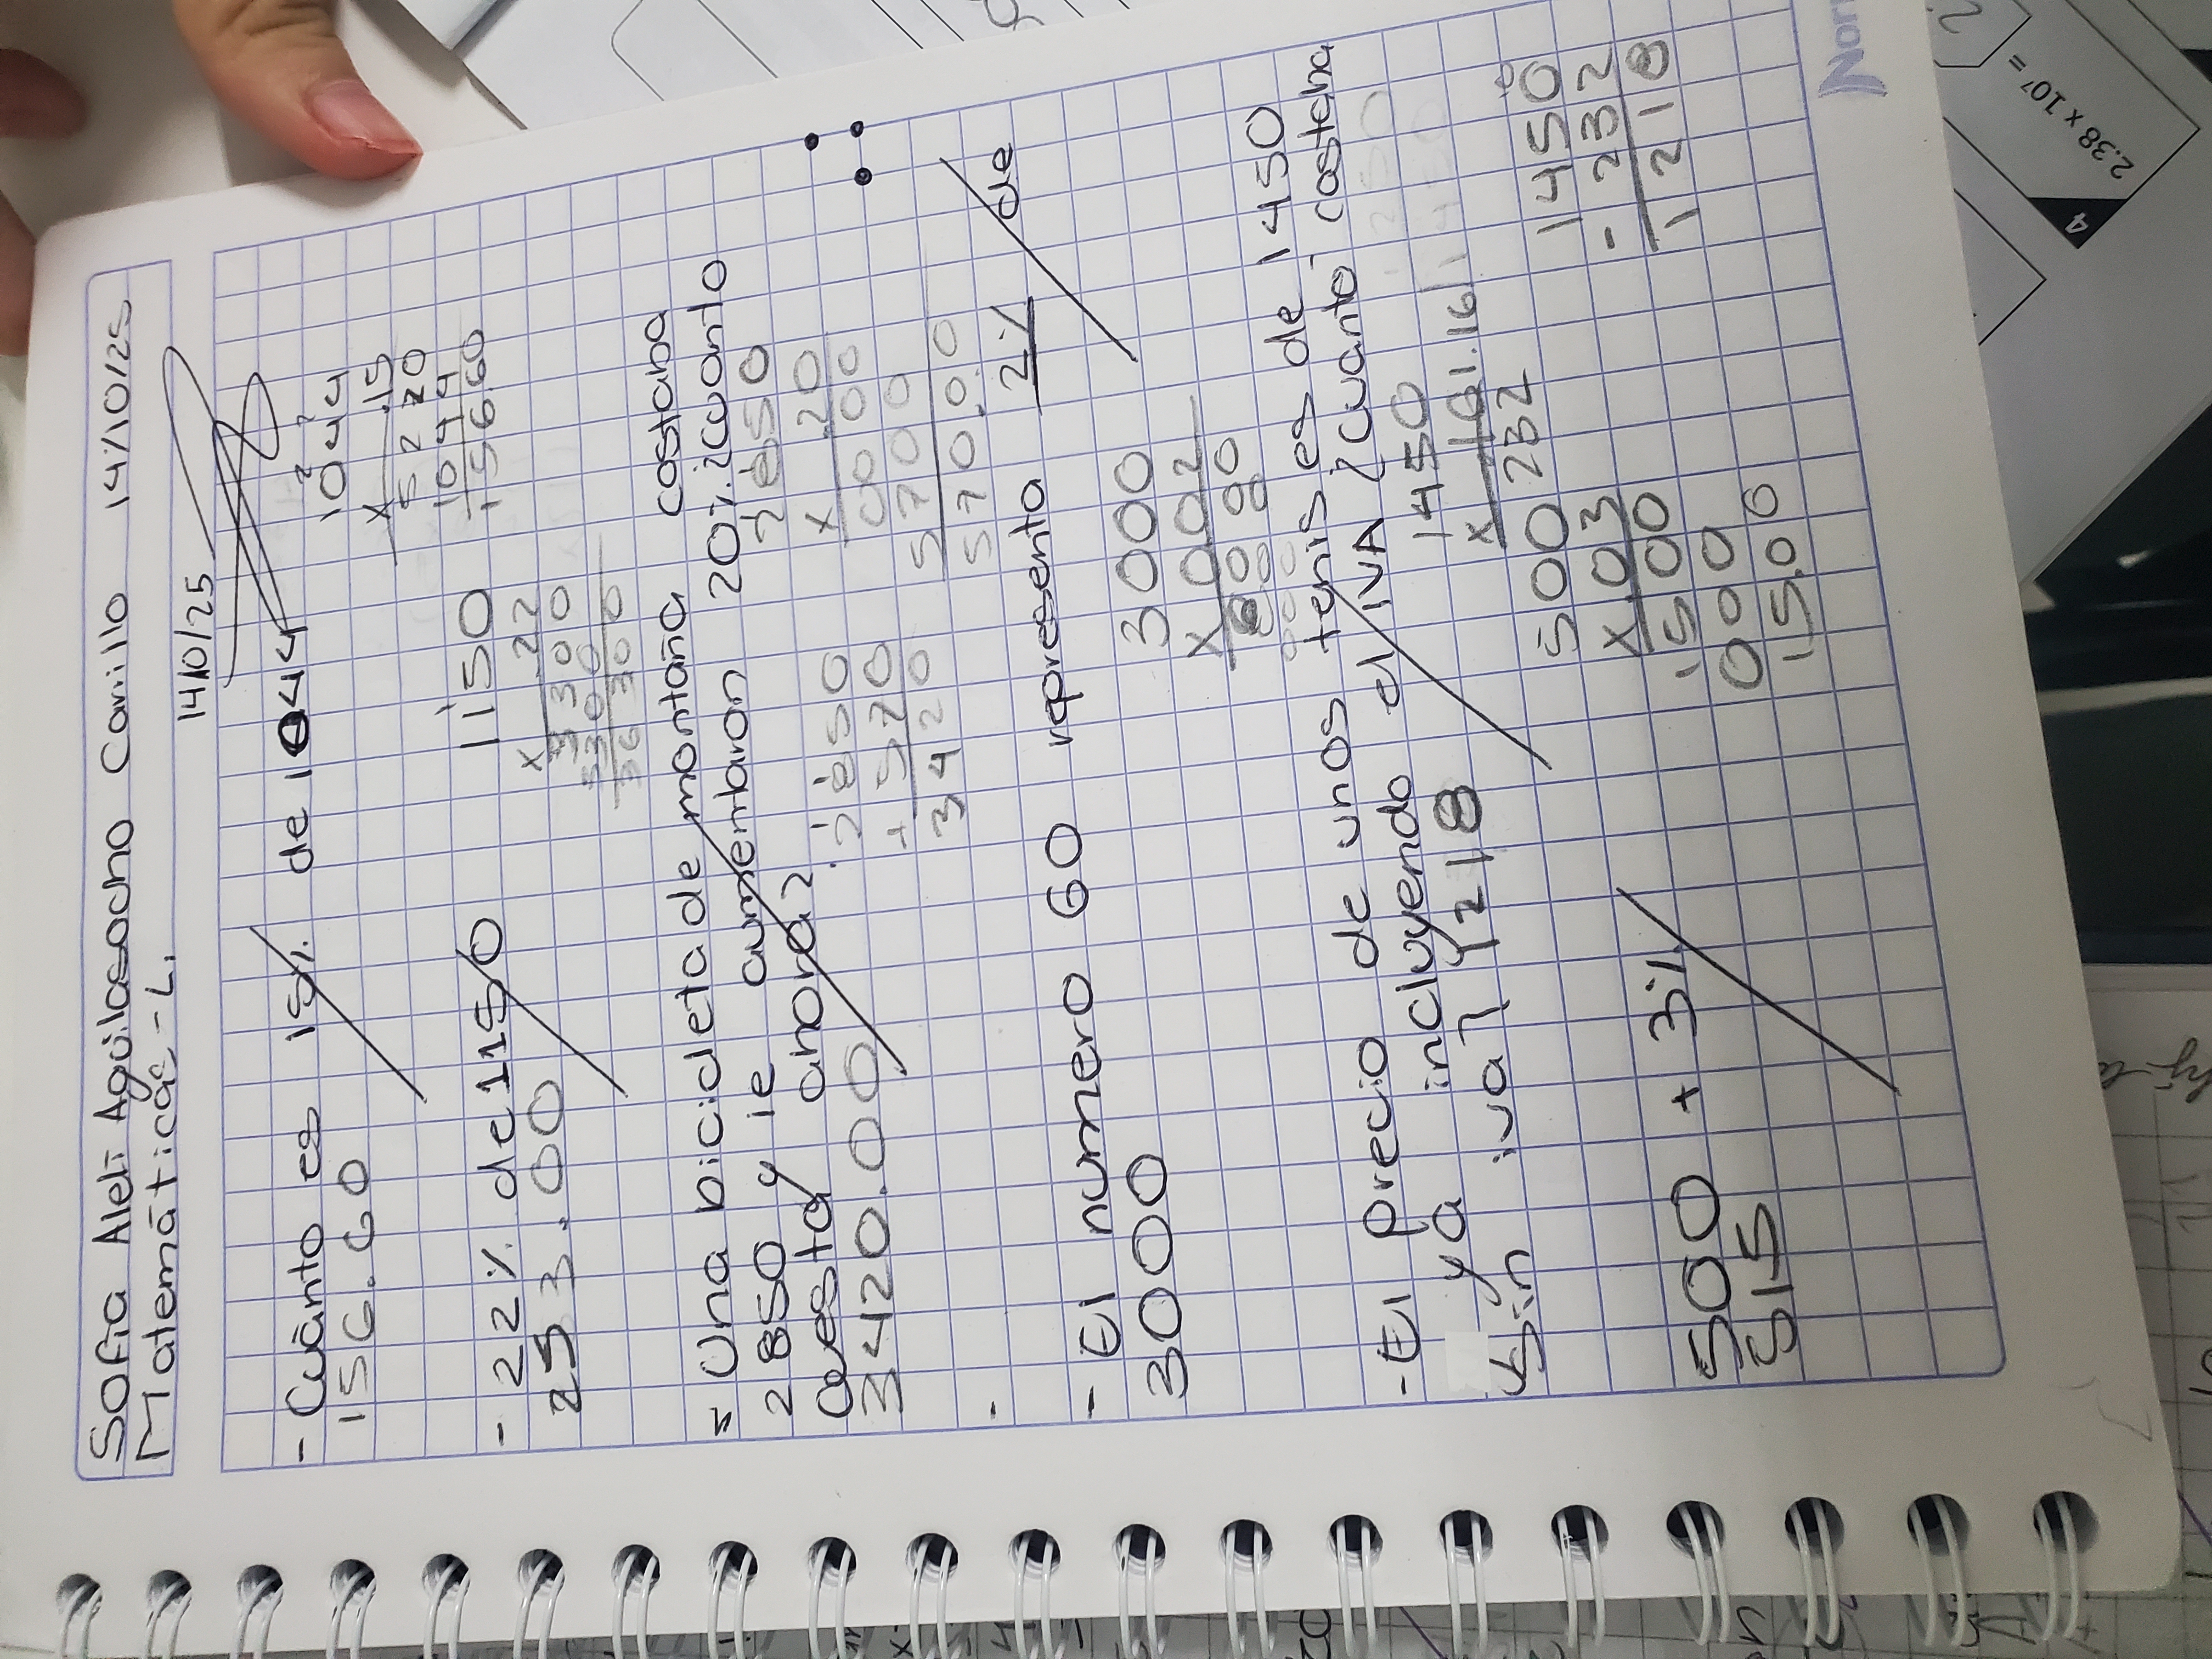 Sofia Aleli Aguilasocho Carrillo 14/10/25
Matemáticas - L.
14/10/25
- Cuánto es 15% de 1044
156.60
1044
x .15
5220
1044
156.60
- 22% de 1150
253.00
1150
x .22
= Una bicicleta de montaña costaba
2850 y le aumentaron 20% ¿cuanto
cuesta ahora?
3420.00
2850
x .20
0000
5700
570.00
2850
+ 570
3420
- El numero 60 representa 2% de
3000
3000
x 002
- El precio de unos tenis es de 1450
y ya incluyendo el IVA ¿Cuanto costeria
sin iva? 1218
1450
232
1450
- 232
1218
500 + 3%
515
500
x .03
1500
000
15.00
Nor
4
2.38 x 10⁷ =